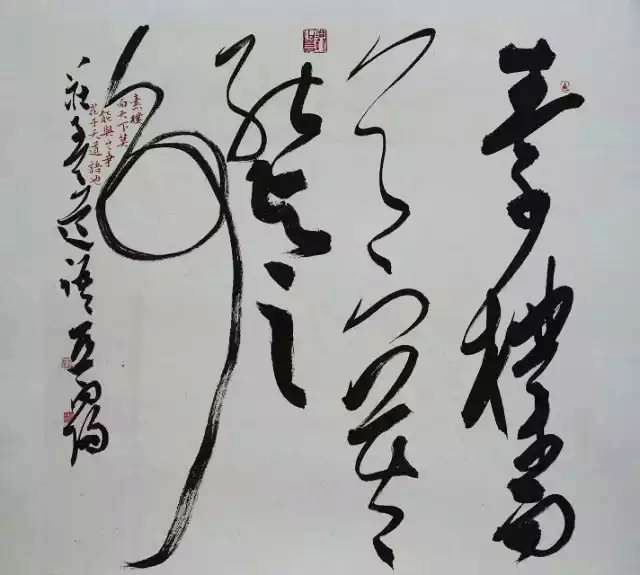 素樸而
天下莫
能與之
爭
素樸
而天下莫
能與之争
莊子天道語也
莊子天道語